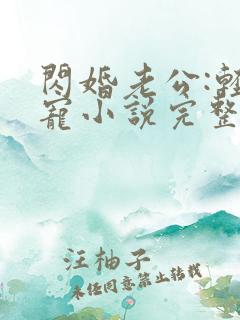 閃婚老公:輕
寵小說完整
汪柚子
未任同意禁止轉載